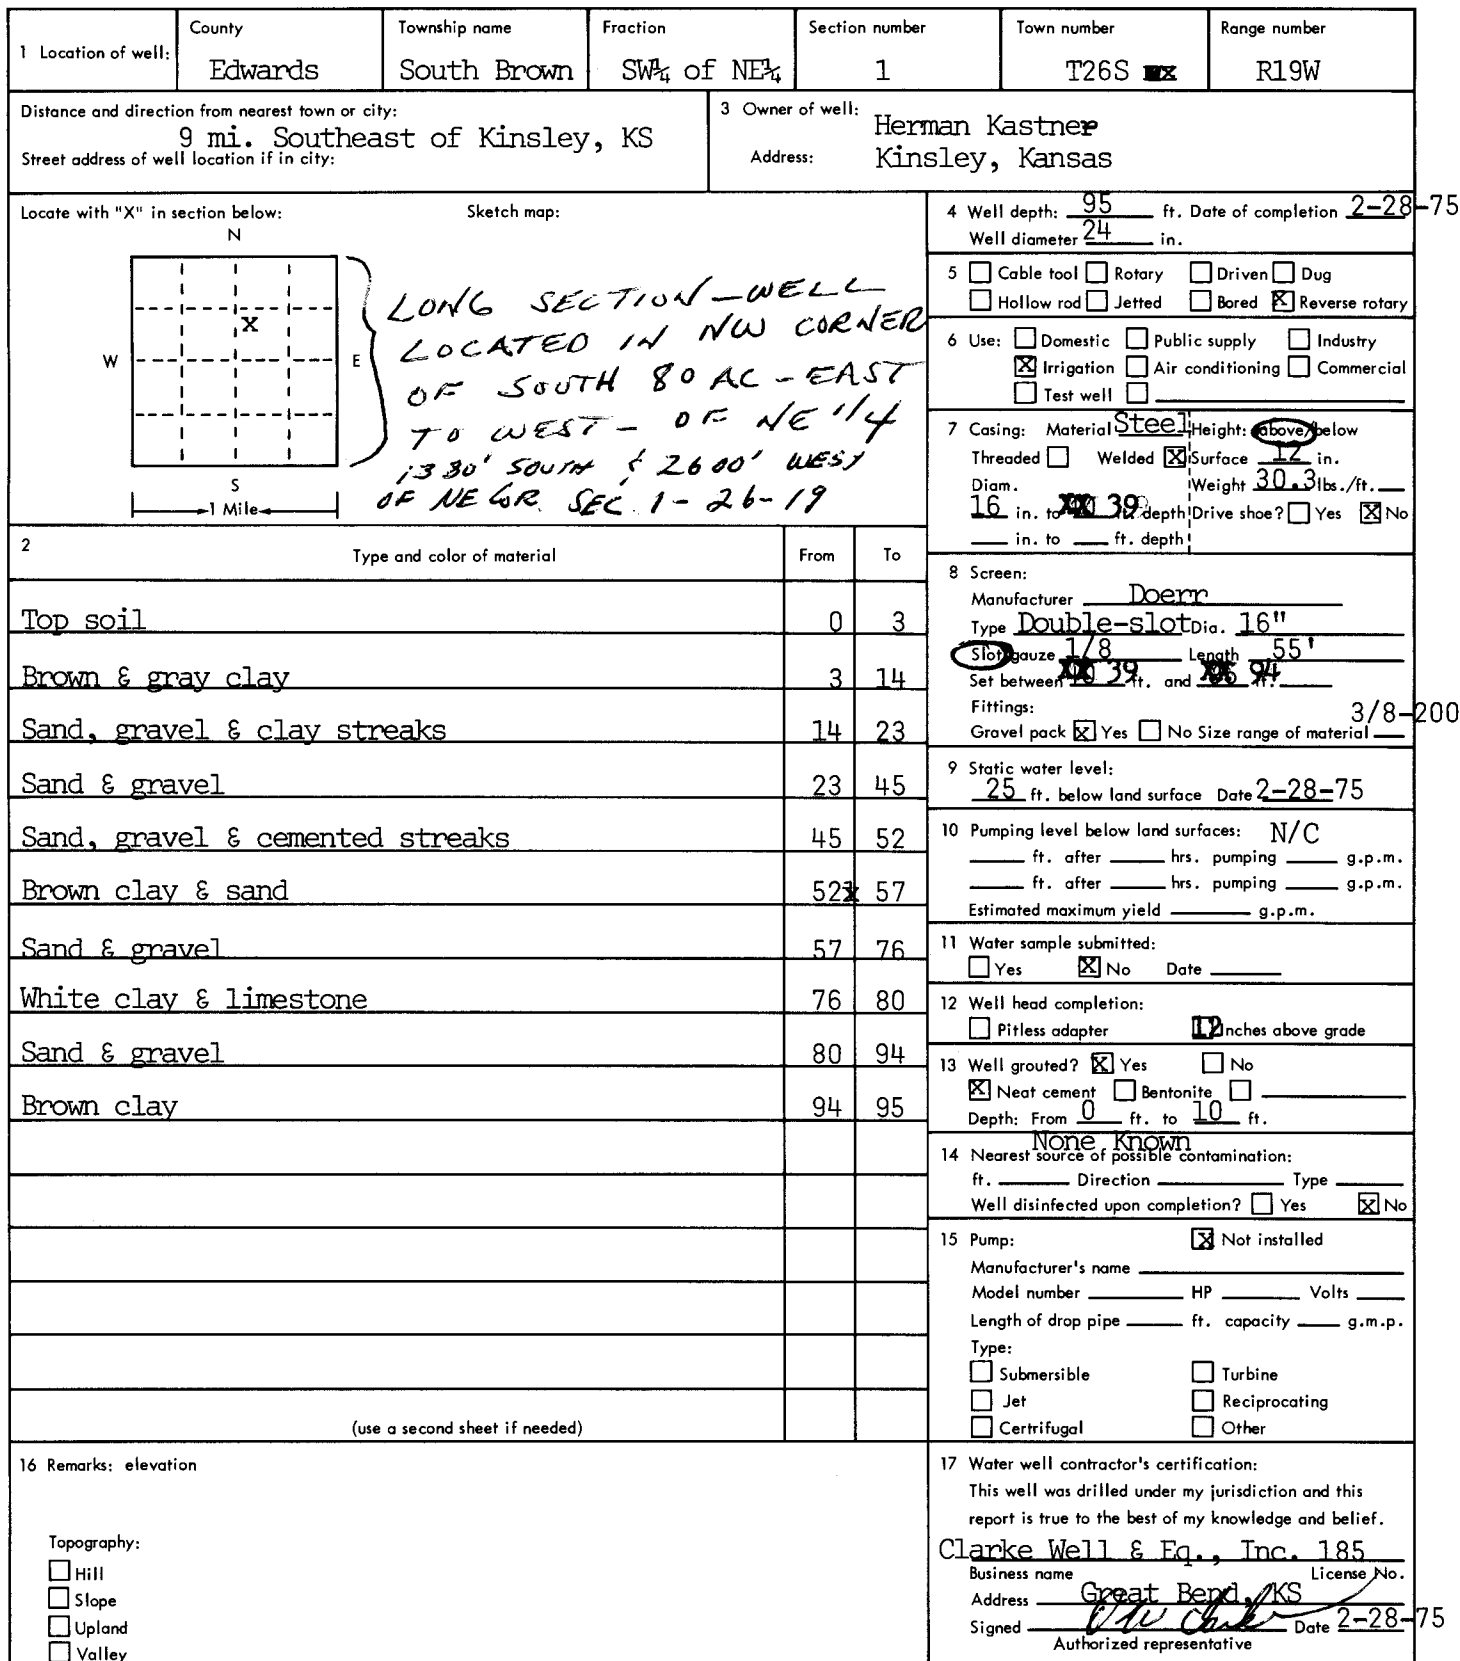 County Township name Fraction Section number Town number Range number
1 Location of well: Edwards South Brown SW¼ of NE¼ 1 T26S R19W
Distance and direction from nearest town or city:
9 mi. Southeast of Kinsley, KS
Street address of well location if in city:
3 Owner of well: Herman Kastner
Address: Kinsley, Kansas
Locate with "X" in section below: Sketch map:
N
X
W E
S
1 Mile
LONG SECTION - WELL
LOCATED IN NW CORNER
OF SOUTH 80 AC - EAST
TO WEST - OF NE 1/4
1330' SOUTH & 2600' WEST
OF NE COR. SEC. 1-26-19
2 Type and color of material From To
Top soil 0 3
Brown & gray clay 3 14
Sand, gravel & clay streaks 14 23
Sand & gravel 23 45
Sand, gravel & cemented streaks 45 52
Brown clay & sand 52 57
Sand & gravel 57 76
White clay & limestone 76 80
Sand & gravel 80 94
Brown clay 94 95
(use a second sheet if needed)
16 Remarks: elevation
Topography:
Hill
Slope
Upland
Valley
4 Well depth: 95 ft. Date of completion 2-28-75
Well diameter 24 in.
5 Cable tool Rotary Driven Dug
Hollow rod Jetted Bored X Reverse rotary
6 Use: Domestic Public supply Industry
X Irrigation Air conditioning Commercial
Test well
7 Casing: Material Steel Height: above/below
Threaded Welded X Surface 12 in.
Diam. Weight 30.3 lbs./ft.
16 in. to 39 ft. depth Drive shoe? Yes X No
in. to ft. depth
8 Screen:
Manufacturer Doerr
Type Double-slot Dia. 16"
Slot/gauze 1/8 Length 55'
Set between 39 ft. and 94 ft.
Fittings:
3/8-200
Gravel pack X Yes No Size range of material
9 Static water level:
25 ft. below land surface Date 2-28-75
10 Pumping level below land surfaces: N/C
ft. after hrs. pumping g.p.m.
ft. after hrs. pumping g.p.m.
Estimated maximum yield g.p.m.
11 Water sample submitted:
Yes X No Date
12 Well head completion:
Pitless adapter 12 Inches above grade
13 Well grouted? X Yes No
X Neat cement Bentonite
Depth: From 0 ft. to 10 ft.
None Known
14 Nearest source of possible contamination:
ft. Direction Type
Well disinfected upon completion? Yes X No
15 Pump: X Not installed
Manufacturer's name
Model number HP Volts
Length of drop pipe ft. capacity g.m.p.
Type:
Submersible Turbine
Jet Reciprocating
Certrifugal Other
17 Water well contractor's certification:
This well was drilled under my jurisdiction and this
report is true to the best of my knowledge and belief.
Clarke Well & Eq., Inc. 185
Business name License No.
Address Great Bend, KS
Signed Clarke Date 2-28-75
Authorized representative